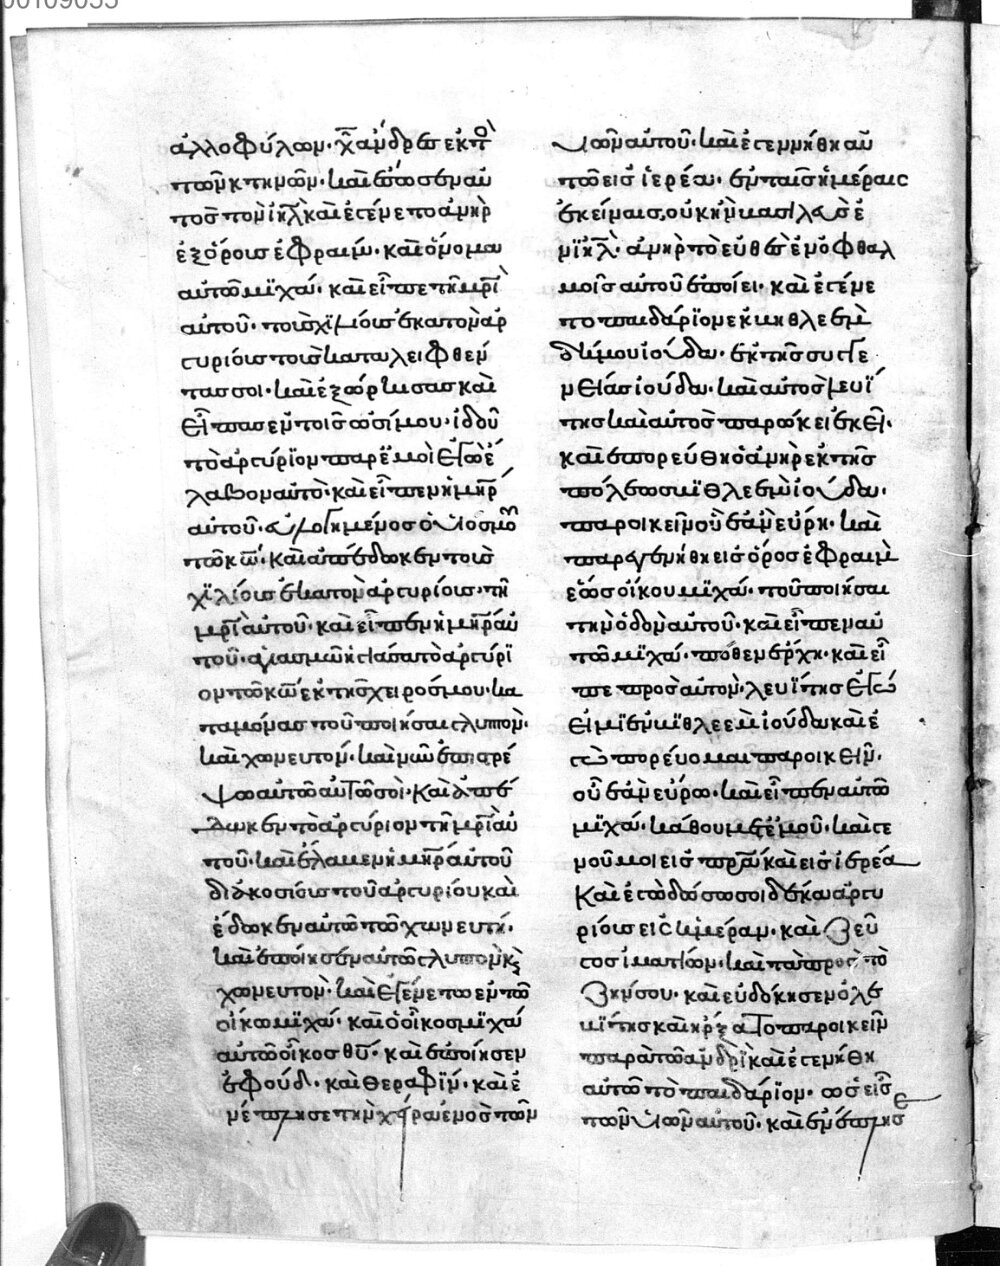 ἀλλοφύλων· χ̅ ἀνδρῶν ἐκτὸ
τῶν κτηνῶν· καὶ ἔσωσεν αὐ
τὸς τὸν ι̅η̅λ̅ καὶ ἐγένετο ἀνὴρ
ἐξ ὄρους ἐφραίμ· καὶ ὄνομα
αὐτῶ μϊχά· καὶ εἶπε τῆ μρ̅ὶ
αὐτοῦ· τοὺς χϊλίους ἑκατὸν ἀρ
γυρίους τοὺς καταλειφθέν
τας σοι· καὶ ἐξώρκισας καὶ
εἶπας ἐν τοῖς ὠσί μου· ἰδοὺ
τὸ ἀργύρϊον παρ ἐμοὶ ἐγὼ ἔ
λαβον αὐτό· καὶ εἶπεν ἡ μη̅ρ
αὐτοῦ· εὐλογημένος ὁ υἱός μου
τῶ κ̅ω̅· καὶ ἀπέδωκεν τοὺς
χϊλίους ἑκατὸν ἀργυρίους· τῆ
μρ̅ὶ αὐτοῦ· καὶ εἶπεν ἡ μη̅ρ αὐ
τοῦ· ἁγιασμῶ ἡγίασα τὸ ἀργύρϊ
ον τῶ κ̅ω̅ ἐκ τῆς χειρός μου· κα
ταμόνας τοῦ ποιῆσαι γλυπτὸν·
καὶ χωνευτόν· καὶ νῦν ἐπιστρέ
ψω αὐτῶ αὐτῶ σοὶ· καὶ ἀπέ
δωκεν τὸ ἀργύριον τῆ μρ̅ὶ αὐ
τοῦ· καὶ ἔλαβεν ἡ μη̅ρ αὐτοῦ
διακοσίους τοῦ ἀργυρίου καὶ
ἔδωκεν αὐτῶ τῶ χωνευτῆ·
καὶ ἐποίησεν αὐτῶ γλυπτὸν κ̀
χωνευτὸν· καὶ ἐγένετο ἐν τῶ
οἴκω μϊχά· καὶ ὁ οἶκος μϊχά
αὐτῶ οἶκος θ̅υ̅· καὶ ἐποίησεν
ἐφούδ· καὶ θεραφϊμ· καὶ ἐ
νέπλησε τὴν χεῖρα ἑνὸς τῶν
υἱῶν αὐτοῦ· καὶ ἐγενήθη αὐ
τῶ εἰς ἱερέα· ἐν ταῖς ἡμέραις
ἐκείναις, οὐκ ἦν βασιλεὺς ἐ
ν ι̅η̅λ̅· ἀνὴρ τὸ εὐθὲς ἐν ὀφθαλ
μοῖς αὐτοῦ ἐποίει· καὶ ἐγένε
το παιδάρϊον ἐκ βηθλεὲμ
δήμου ἰούδα· ἐκ τῆς συγγε
νείας ἰούδα· καὶ αὐτὸς λευΐ
της καὶ αὐτὸς παρώκει ἐκεῖ·
καὶ ἐπορεύθη ὁ ἀνὴρ ἐκ τῆς
πόλεως βϊθλεὲμ ἰούδα·
παροικεῖν οὗ ἐὰν εὕρη· καὶ
παρεγενήθη εἰς ὄρος ἐφραὶμ
ἕως οἴκου μϊχά· τοῦ ποιῆσαι
τὴν ὁδὸν αὐτοῦ· καὶ εἶπεν αὐ
τῶ μϊχά· πόθεν ἔρχη· καὶ εἶ
πε πρὸς αὐτὸν· λευΐτης ἐγώ
εἰμϊ ἐκ βϊθλεὲμ ἰούδα καὶ ἐ
γὼ πορεύομαι παροικεῖν·
οὗ ἐὰν εὕρω· καὶ εἶπεν αὐτῶ
μϊχά· κάθου μετ ἐμοῦ· καὶ γε
νοῦ μοι εἰς πρ̅α καὶ εἰς ἱερέα
καὶ ἐγὼ δώσω σοι δέκα ἀργυ
ρίους εἰς ἡμέραν· καὶ ζεῦ
γος ἱματίων· καὶ τὰ πρὸς τὸ
ζῆν σου· καὶ εὐδόκησεν ὁ λε
υΐτης καὶ ἤρξατο παροικεῖν
παρὰ τῶ ἀνδρὶ καὶ ἐγενήθη
αὐτῶ τὸ παιδάρϊον· ὡς εἷς
τῶν υἱῶν αὐτοῦ· καὶ ἐνέπλησε